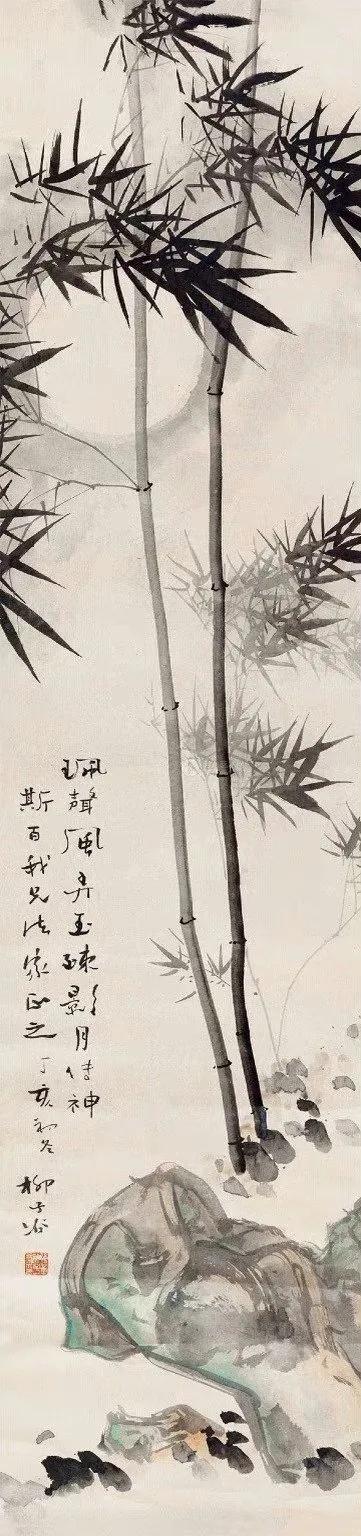 珮聲風弄玉疎影月傳神
斯百我兄法家正之 丁亥初冬 柳子谷